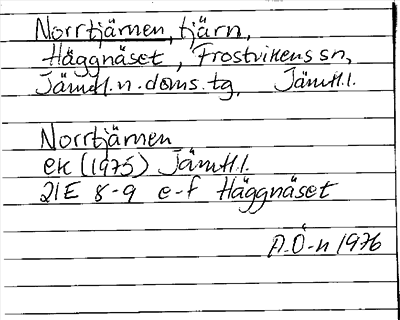 Norrtjärnen, tjärn,
Häggnäset, Frostvikens sn,
Jämtl. n. doms. tg, Jämtl.l.
Norrtjärnen
ek (1975) Jämtl.l.
21E 8-9 e-f Häggnäset
A.Ö-n 1976